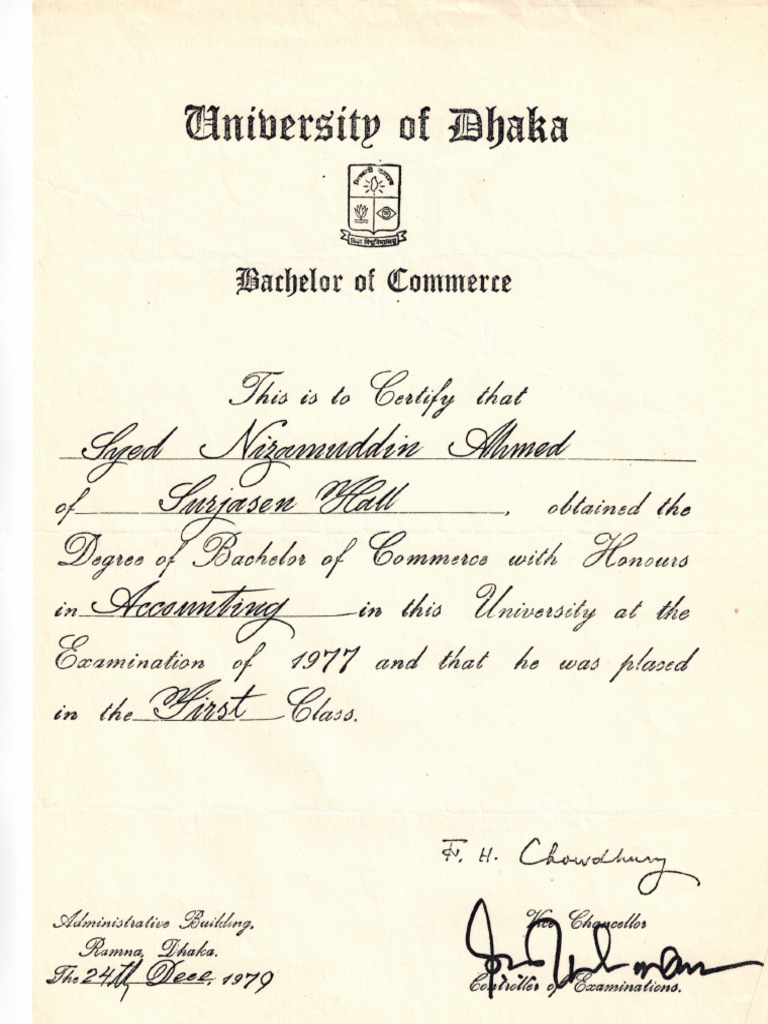 University of Dhaka
Bachelor of Commerce
This is to Certify that
Syed Nizamuddin Ahmed
of Surjasen Hall, obtained the
Degree of Bachelor of Commerce with Honours
in Accounting in this University at the
Examination of 1977 and that he was placed
in the First Class.
F. H. Chowdhury
Vice Chancellor
Administrative Building,
Ramna, Dhaka.
The 24th Dece. 1979
Controller of Examinations.